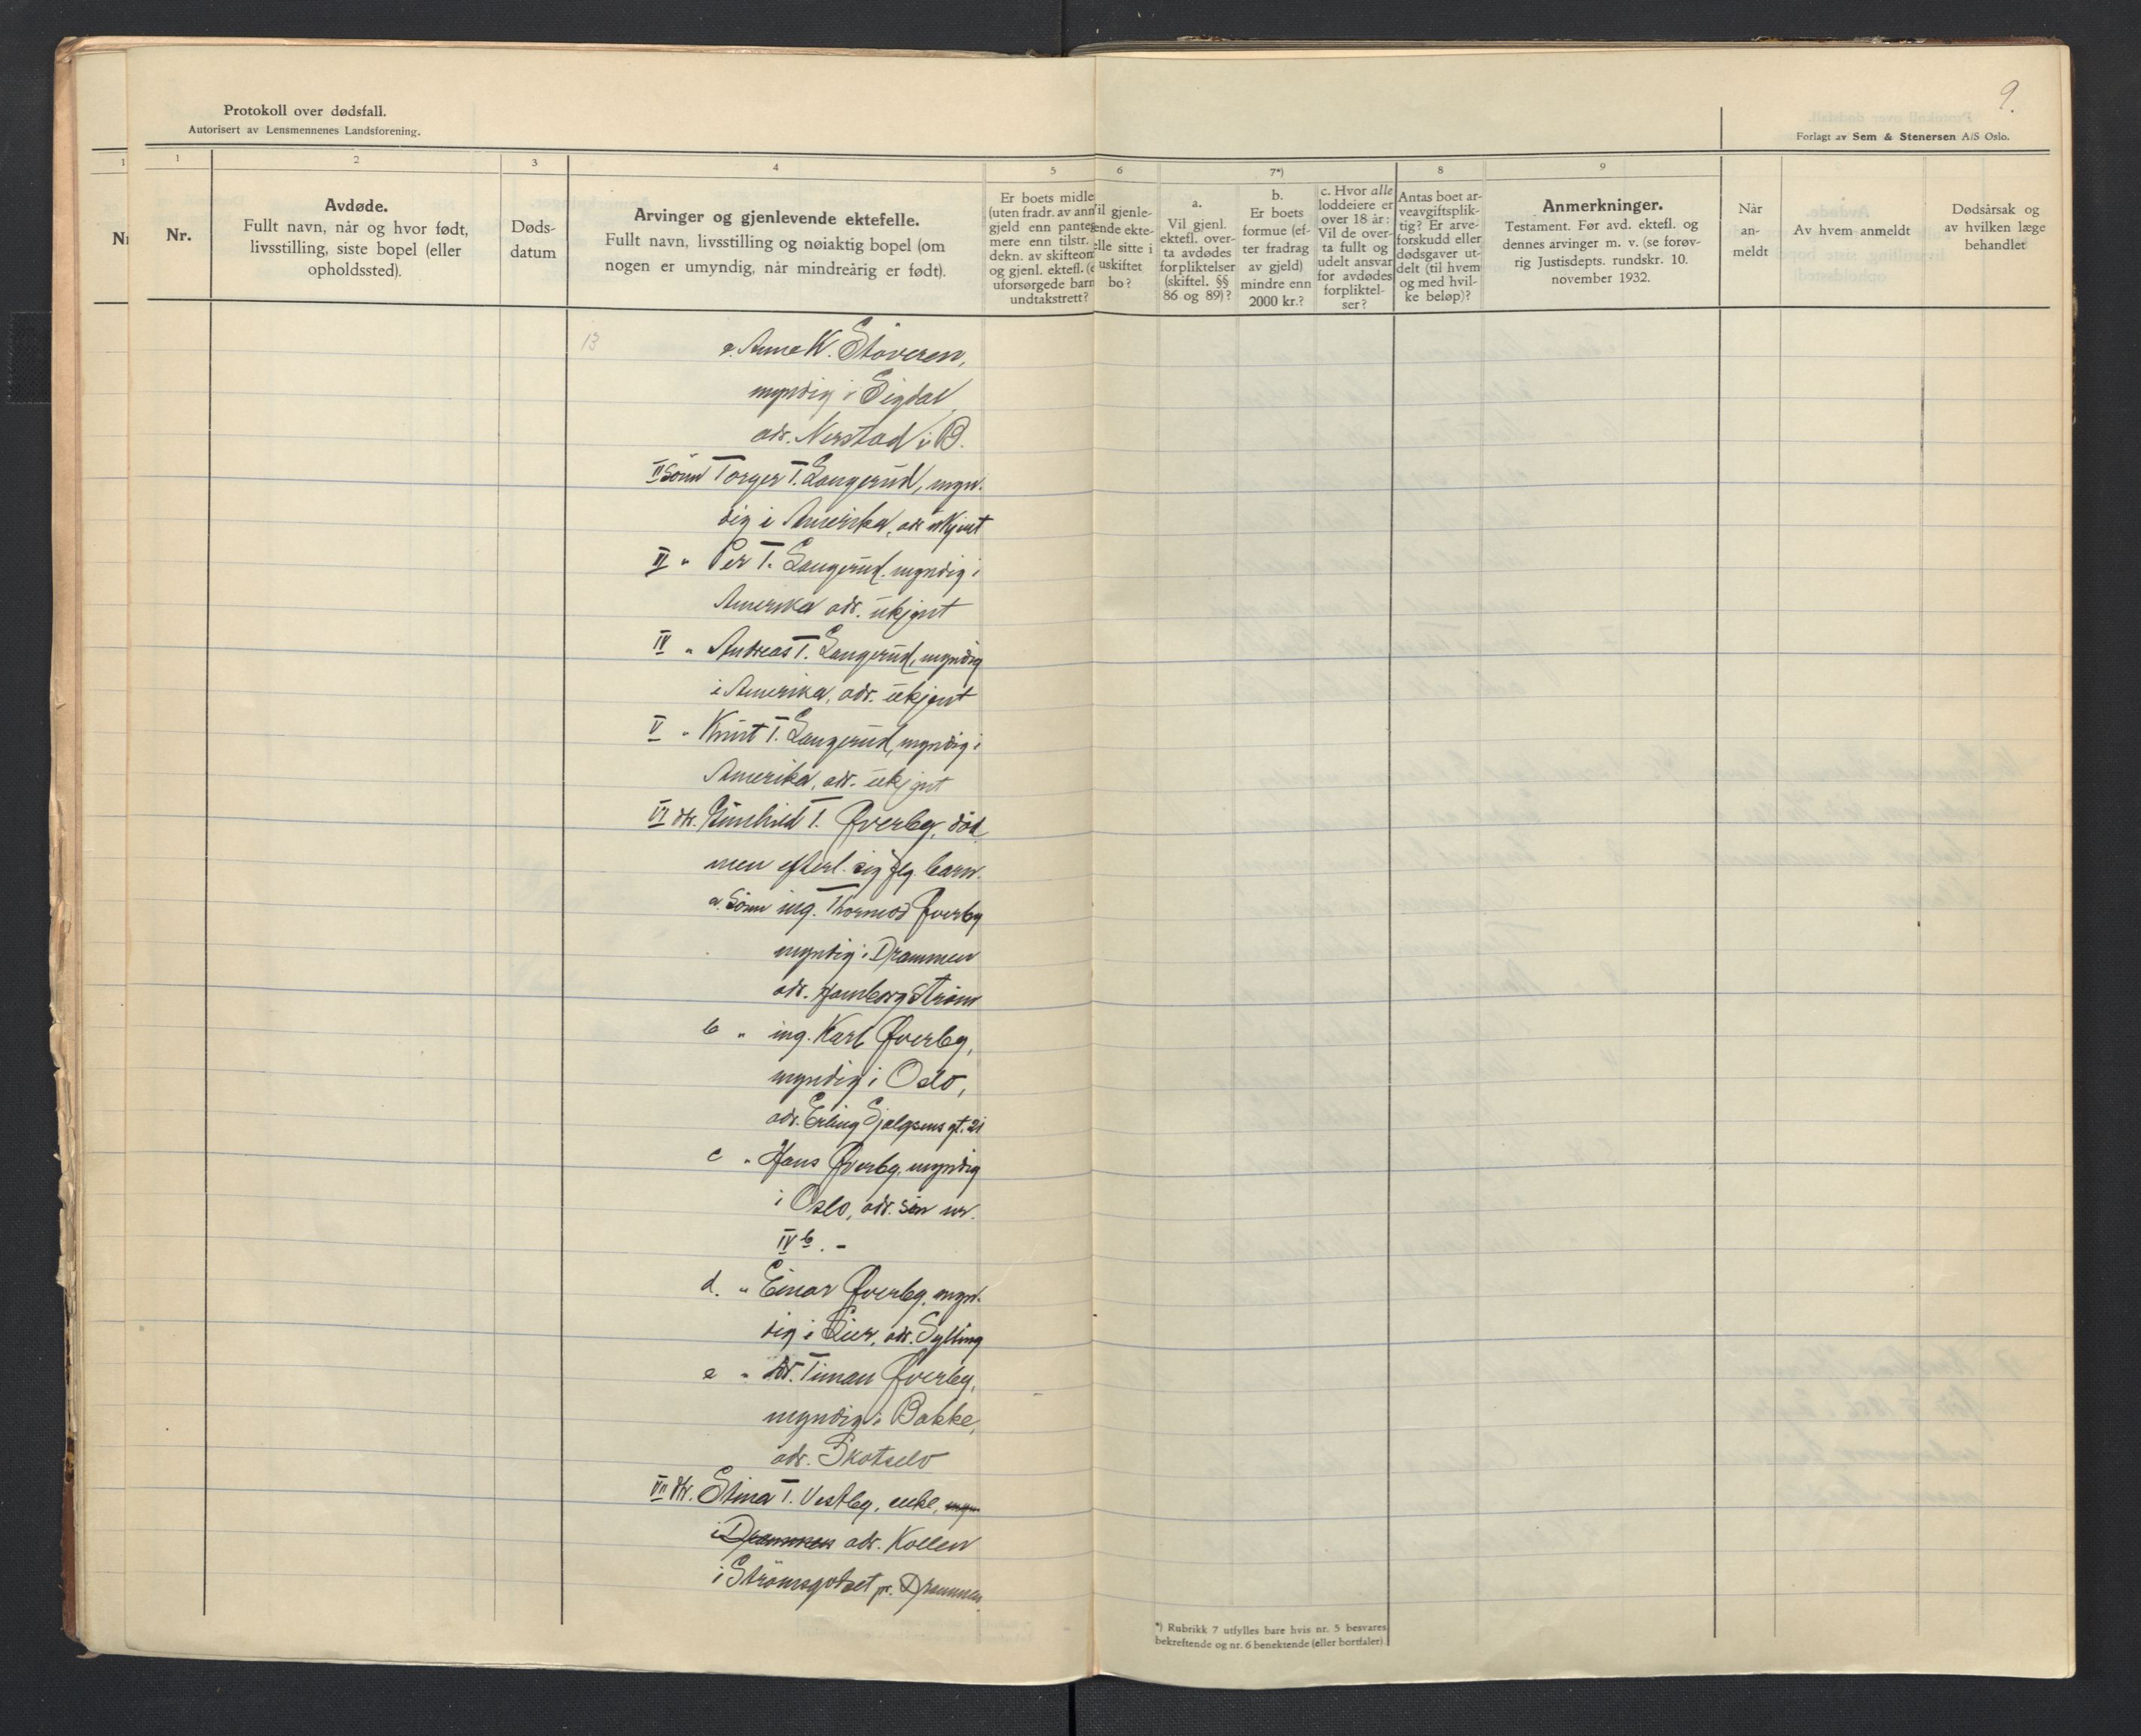 9.
Protokoll over dødsfall.
Autorisert av Lensmennenes Landsforening.
Forlagt av Sem & Stenersen A/S Oslo.
1
1
2
3
4
5
6
7*)
8
9
Nr.
Avdøde.
Fullt navn, når og hvor født,
livsstilling, siste bopel (eller
opholdssted).
Døds-
datum
Arvinger og gjenlevende ektefelle.
Fullt navn, livsstilling og nøiaktig bopel (om
nogen er umyndig, når mindreårig er født).
Er boets midle
(uten fradr. av ann
gjeld enn pante
mere enn tilstr.
dekn. av skifteom
og gjenl. ektefl. (
uforsørgede barn
undtakstrett?
il gjenle-
ende ekte-
elle sitte i
uskiftet
bo?
a.
Vil gjenl.
ektefl. over-
ta avdødes
forpliktelser
(skiftel. §§
86 og 89)?
b.
Er boets
formue (ef-
ter fradrag
av gjeld)
mindre enn
2000 kr.?
c. Hvor alle
loddeiere er
over 18 år:
Vil de over-
ta fullt og
udelt ansvar
for avdødes
forpliktel-
ser?
Antas boet ar-
veavgiftsplik-
tig? Er arve-
forskudd eller
dødsgaver ut-
delt (til hvem
og med hvil-
ke beløp)?
Anmerkninger.
Testament. Før avd. ektefl. og
dennes arvinger m. v. (se forøv-
rig Justisdepts. rundskr. 10.
november 1932.
Når
an-
meldt
Av hvem anmeldt
Dødsårsak og
av hvilken læge
behandlet
13
e. Anne K. Støveren,
myndig i Sigdal
adr. Nerstad i B.
II Sønn Torger T. Langerud, myn-
dig i Amerika, adr ukjent
III " Per T. Langerud. myndig i
Amerika adr. ukjent
IV " Andreas T. Langerud, myndig
i Amerika, adr. ukjent
V " Knut T. Langerud, myndig i
Amerika, adr. ukjent
VI dtr. Gunhild T. Øverby, død
men efterl. sig flg. barn.
a. Sønn ing. Thormod Øverby
myndig i Drammen
adr. Hamborgstrøm
b " ing. Karl Øverby,
myndig i Oslo,
adr. Erling Sjalgsens gt. 21
c " Hans Øverby, myndig
i Oslo, adr. som nr.
IV b. -
d. " Einar Øverby, myn-
dig i Lier, adr. Sylling
e " Timan Øverby,
myndig i Bakke,
adr. Skotselv
VII dtr. Stina T. Vestby, enke, myn
i Drammen adr. Kollen
i Strømsgodset pr. Drammen.
*) Rubrikk 7 utfylles bare hvis nr. 5 besvares
bekreftende og nr. 6 benektende (eller bortfaler).